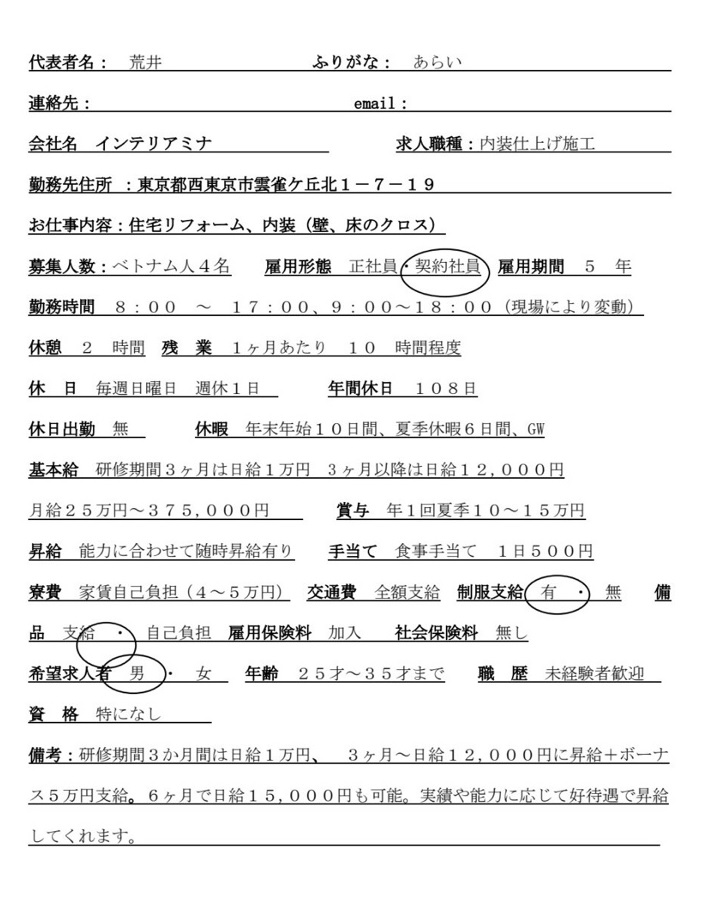 代表者名：　荒井　　　　　　　　　ふりがな：　あらい
連絡先：　　　　　　　　　　　　　email：
会社名　インテリアミナ　　　　　　　求人職種：内装仕上げ施工
勤務先住所　：東京都西東京市雲雀ケ丘北１－７－１９
お仕事内容：住宅リフォーム、内装（壁、床のクロス）
募集人数：ベトナム人４名　　雇用形態　正社員・契約社員　雇用期間　５　年
勤務時間　８：００　～　１７：００、９：００～１８：００（現場により変動）
休憩　２　時間　残　業　１ヶ月あたり　１０　時間程度
休　日　毎週日曜日　週休１日　　　年間休日　１０８日
休日出勤　無　　　　休暇　年末年始１０日間、夏季休暇６日間、GW
基本給　研修期間３ヶ月は日給１万円　３ヶ月以降は日給１２,０００円
月給２５万円～３７５,０００円　　　　賞与　年１回夏季１０～１５万円
昇給　能力に合わせて随時昇給有り　　手当て　食事手当て　１日５００円
寮費　家賃自己負担（４～５万円）　交通費　全額支給　制服支給　有　・　無　　備
品　支給　・　自己負担　雇用保険料　加入　　社会保険料　無し
希望求人者　男　・　女　　年齢　２５才～３５才まで　　職　歴　未経験者歓迎
資　格　特になし
備考：研修期間３か月間は日給１万円、　３ヶ月～日給１２,０００円に昇給＋ボーナ
ス５万円支給。６ヶ月で日給１５,０００円も可能。実績や能力に応じて好待遇で昇給
してくれます。